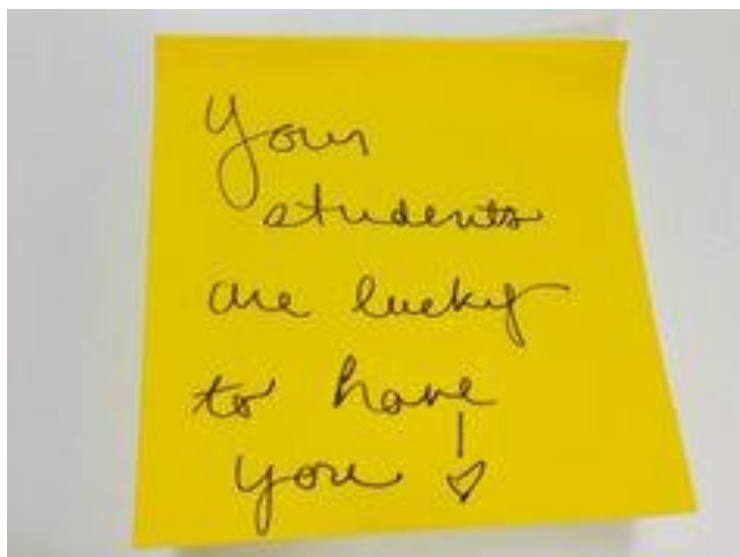 Your
students
are lucky
to have
you!